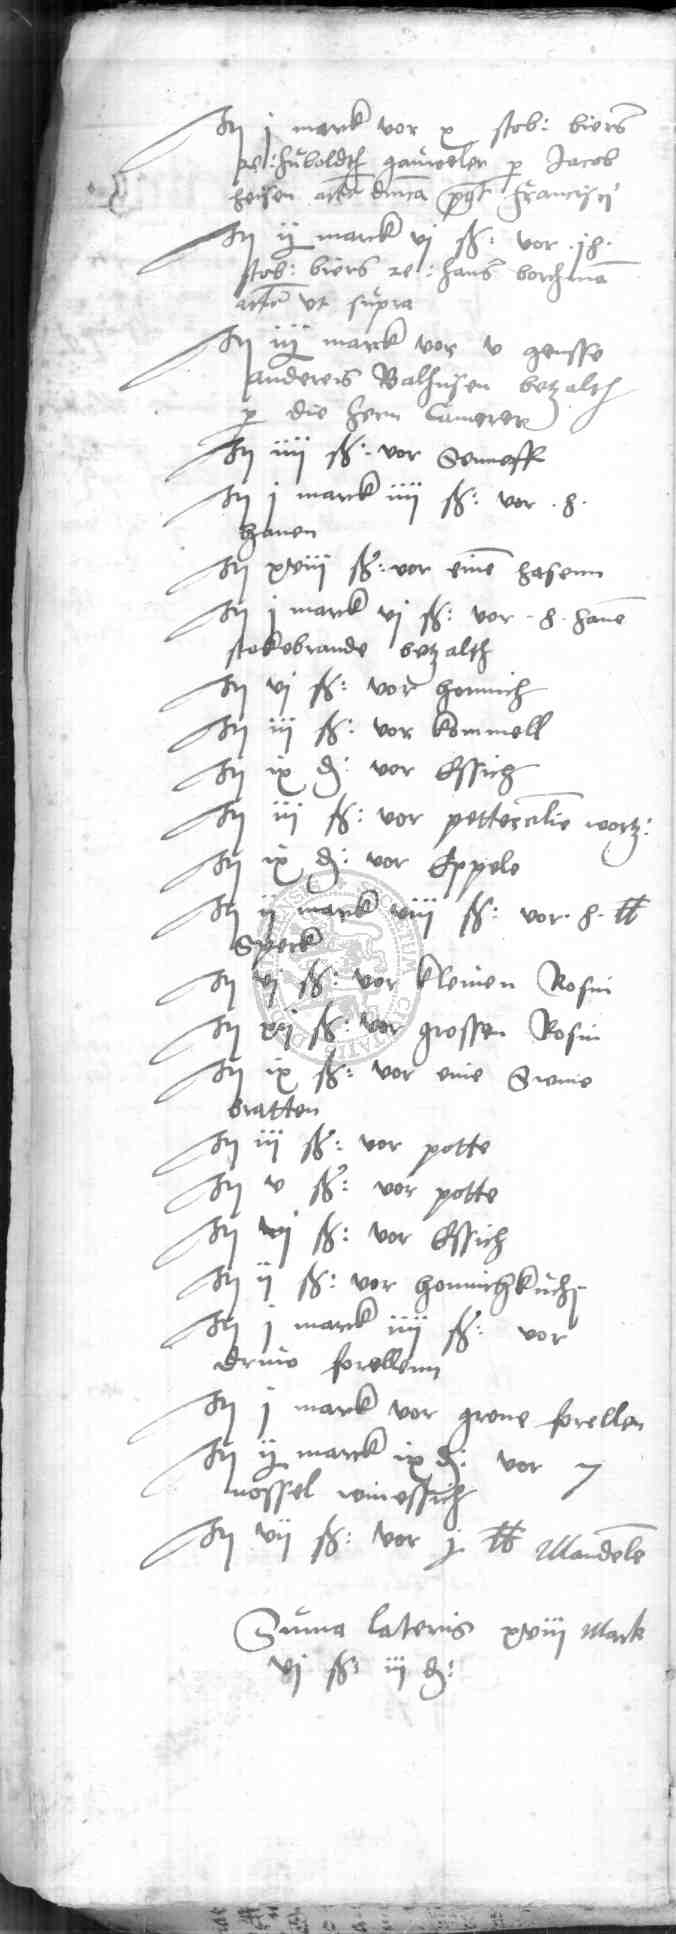 It j marck vor x stob: biers
re: huboldth gauweler p Jacob
heisen actu dnica pt Francisci
It ij marck vj ß: vor . j8 .
stob: biers re: hans borchman
actu vt supra
It iij marck vor v gensse
andereis Balhusen betzalth
p die hern Camerer
It iiii ß: vor Senneff
It j marck iiii ß: vor . 8 .
hanen
It xviii ß: vor eine hasenn
It j marck vj ß: vor . 8 . hane
stokebrande betzalth
It vj ß: vor honnich
It iii ß: vor kommell
It ix d: vor Essich
It iii ß: vor pettercilie wortz:
It ix d: vor Eppele
It ij marck viii ß: vor . 8 . lb
Speck
It vj ß: vor kleinen Rosin
It xj ß: vor grossen Rosin
It ix ß: vor eine Swine
bratten
It iii ß: vor potte
It v ß: vor potte
It vj ß: vor Essich
It ij ß: vor honnichkuch
It j marck iiii ß: vor
forellenn
It j marck vor grone forellen
It ij marck ix d: vor 7
nossel winessich
It vij ß: vor j lb Mandele
Suma lateris xviii Mark
vj ß: iii d: